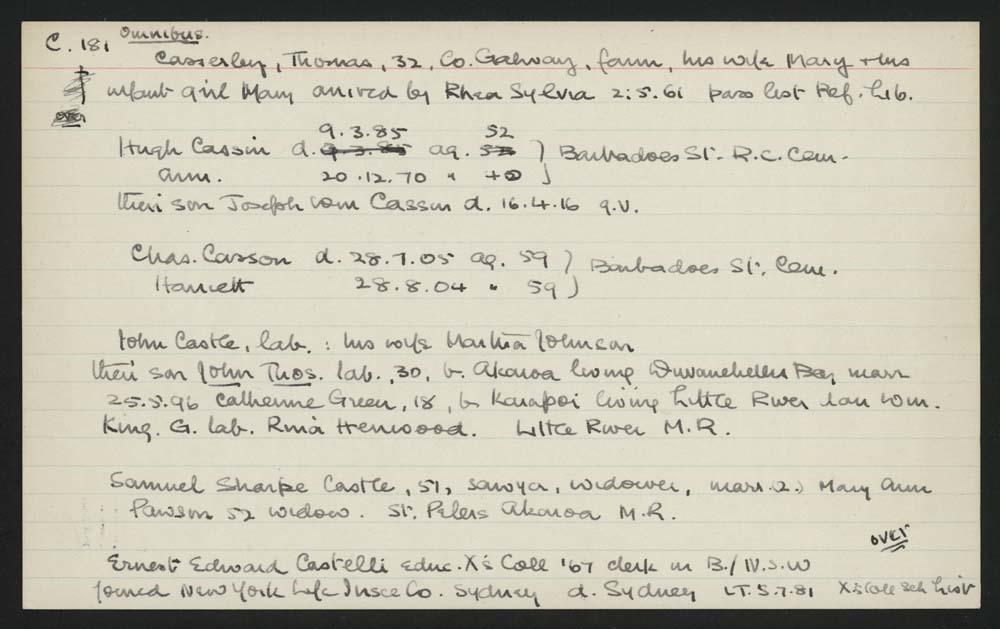 C. 181 Omnibus.
Casserley, Thomas, 32, Co. Galway, farm, his wife Mary + his
infant girl Mary arrived by Rhea Sylvia 2.5.61 pass list Ref. Lib.
over
9.3.85 52
Hugh Cassin d. 9.3.85 ag. 53 } Barbadoes St. R.C. Cem.
Ann. 20.12.70 " 40 }
their son Joseph Wm Cassin d. 16.4.16 q.v.
Chas. Casson d. 28.7.05 ag. 59 } Barbadoes St. Cem.
Harriett 28.8.04 " 59 }
John Castle, lab. : his wife Martha Johnson
their son John Thos. lab., 30, b. Akaroa living Duvauchelles Bay marr
25.5.96 Catherine Green, 18, b Kaiapoi living Little River dau Wm.
King. G. lab. Rina Henwood. Little River M.R.
Samuel Sharpe Castle, 51, sawyer, widower, marr. (2.) Mary Ann
Pawson 52 widow. St. Peters Akaroa M.R.
over
Ernest Edward Castelli educ. X's Coll '67 clerk in B./N.S.W
joined New York Life Insce Co. Sydney d. Sydney LT. 5.7.81 X's Coll Sch List